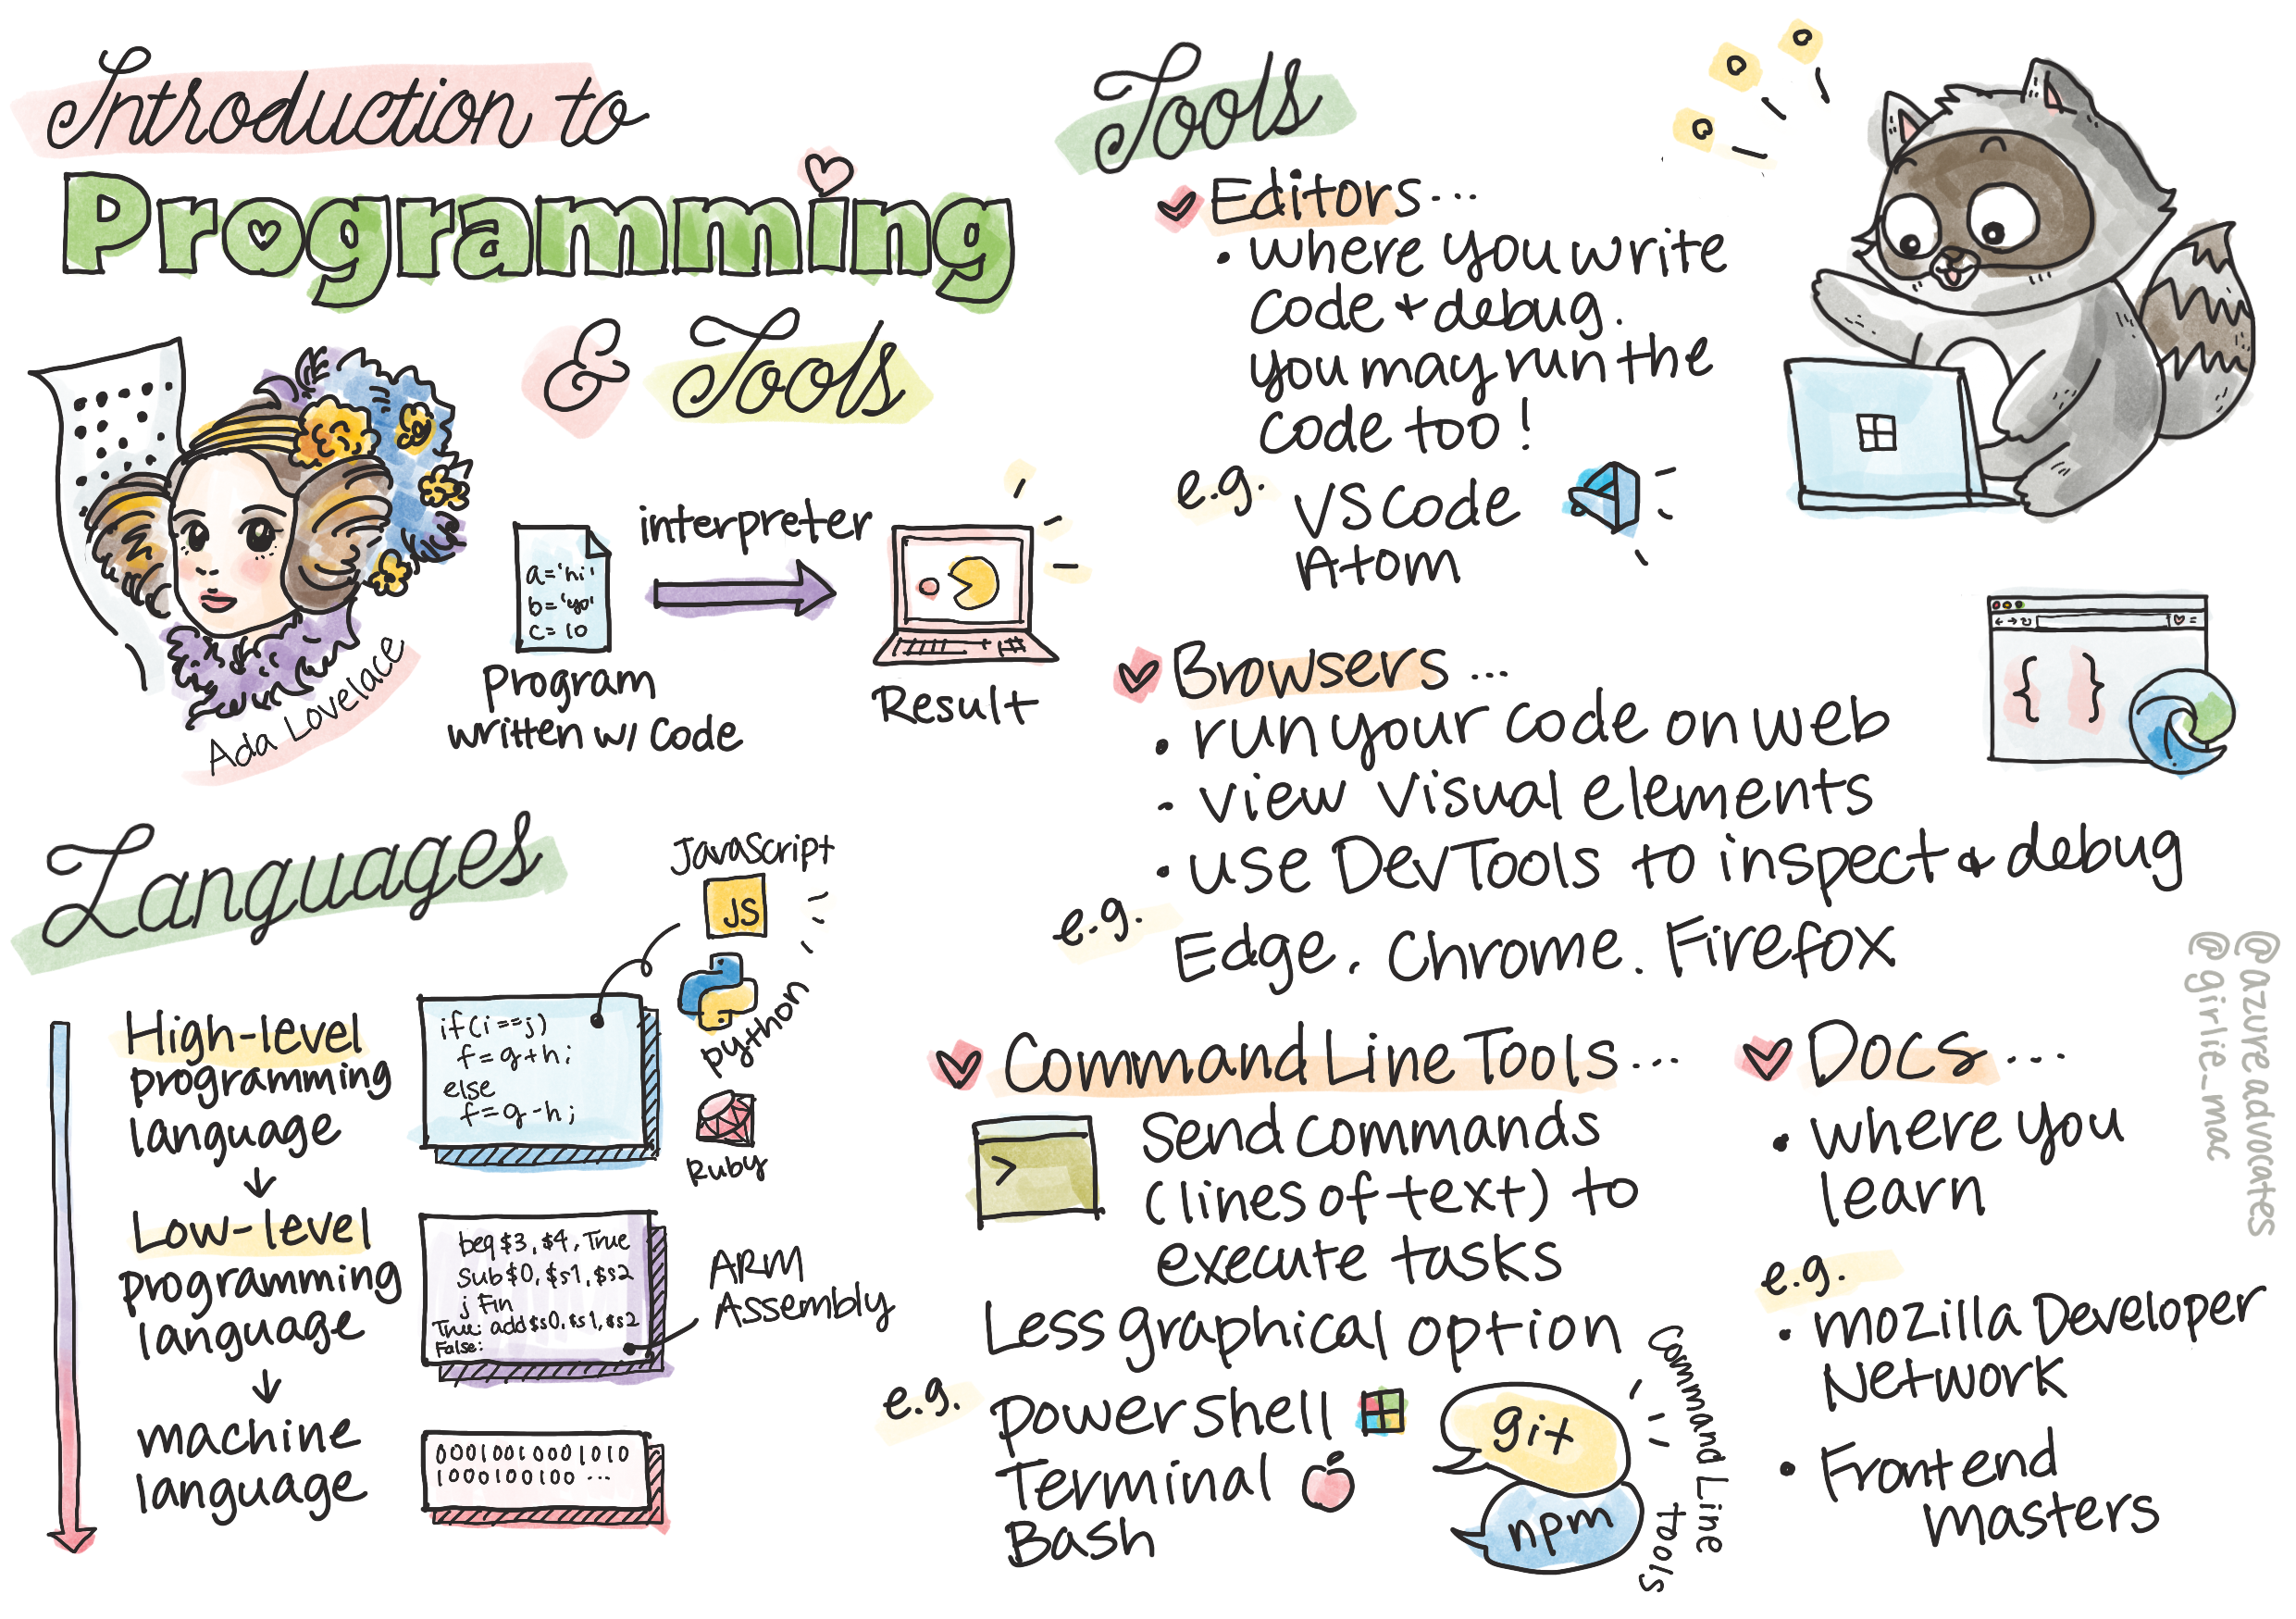 Introduction to
Programming
& Tools
Ada Lovelace
a='hi'
b='yo'
c=10
Program
written w/ code
interpreter
Result
Languages
High-level
programming
language
if(i==j)
f=g+h;
else
f=g-h;
JavaScript
JS
python
Ruby
Low-level
programming
language
beq $3, $4, True
Sub $0, $s1, $s2
j Fin
True: add $s0, $s1, $s2
False:
ARM
Assembly
machine
language
00010010001010
1000100100 ...
Tools
Editors...
• where you write
code + debug.
you may run the
code too!
e.g.
VS Code
Atom
Browsers...
• run your code on web
• view visual elements
• use DevTools to inspect & debug
e.g.
Edge. Chrome. Firefox
{ }
Command Line Tools...
>
Send commands
(lines of text) to
execute tasks
Less graphical option
e.g.
powershell
Terminal
Bash
git
npm
Command Line
tools
Docs...
• where you
learn
e.g.
• mozilla Developer
Network
• Frontend
masters
@azureadvocates
@girlie_mac